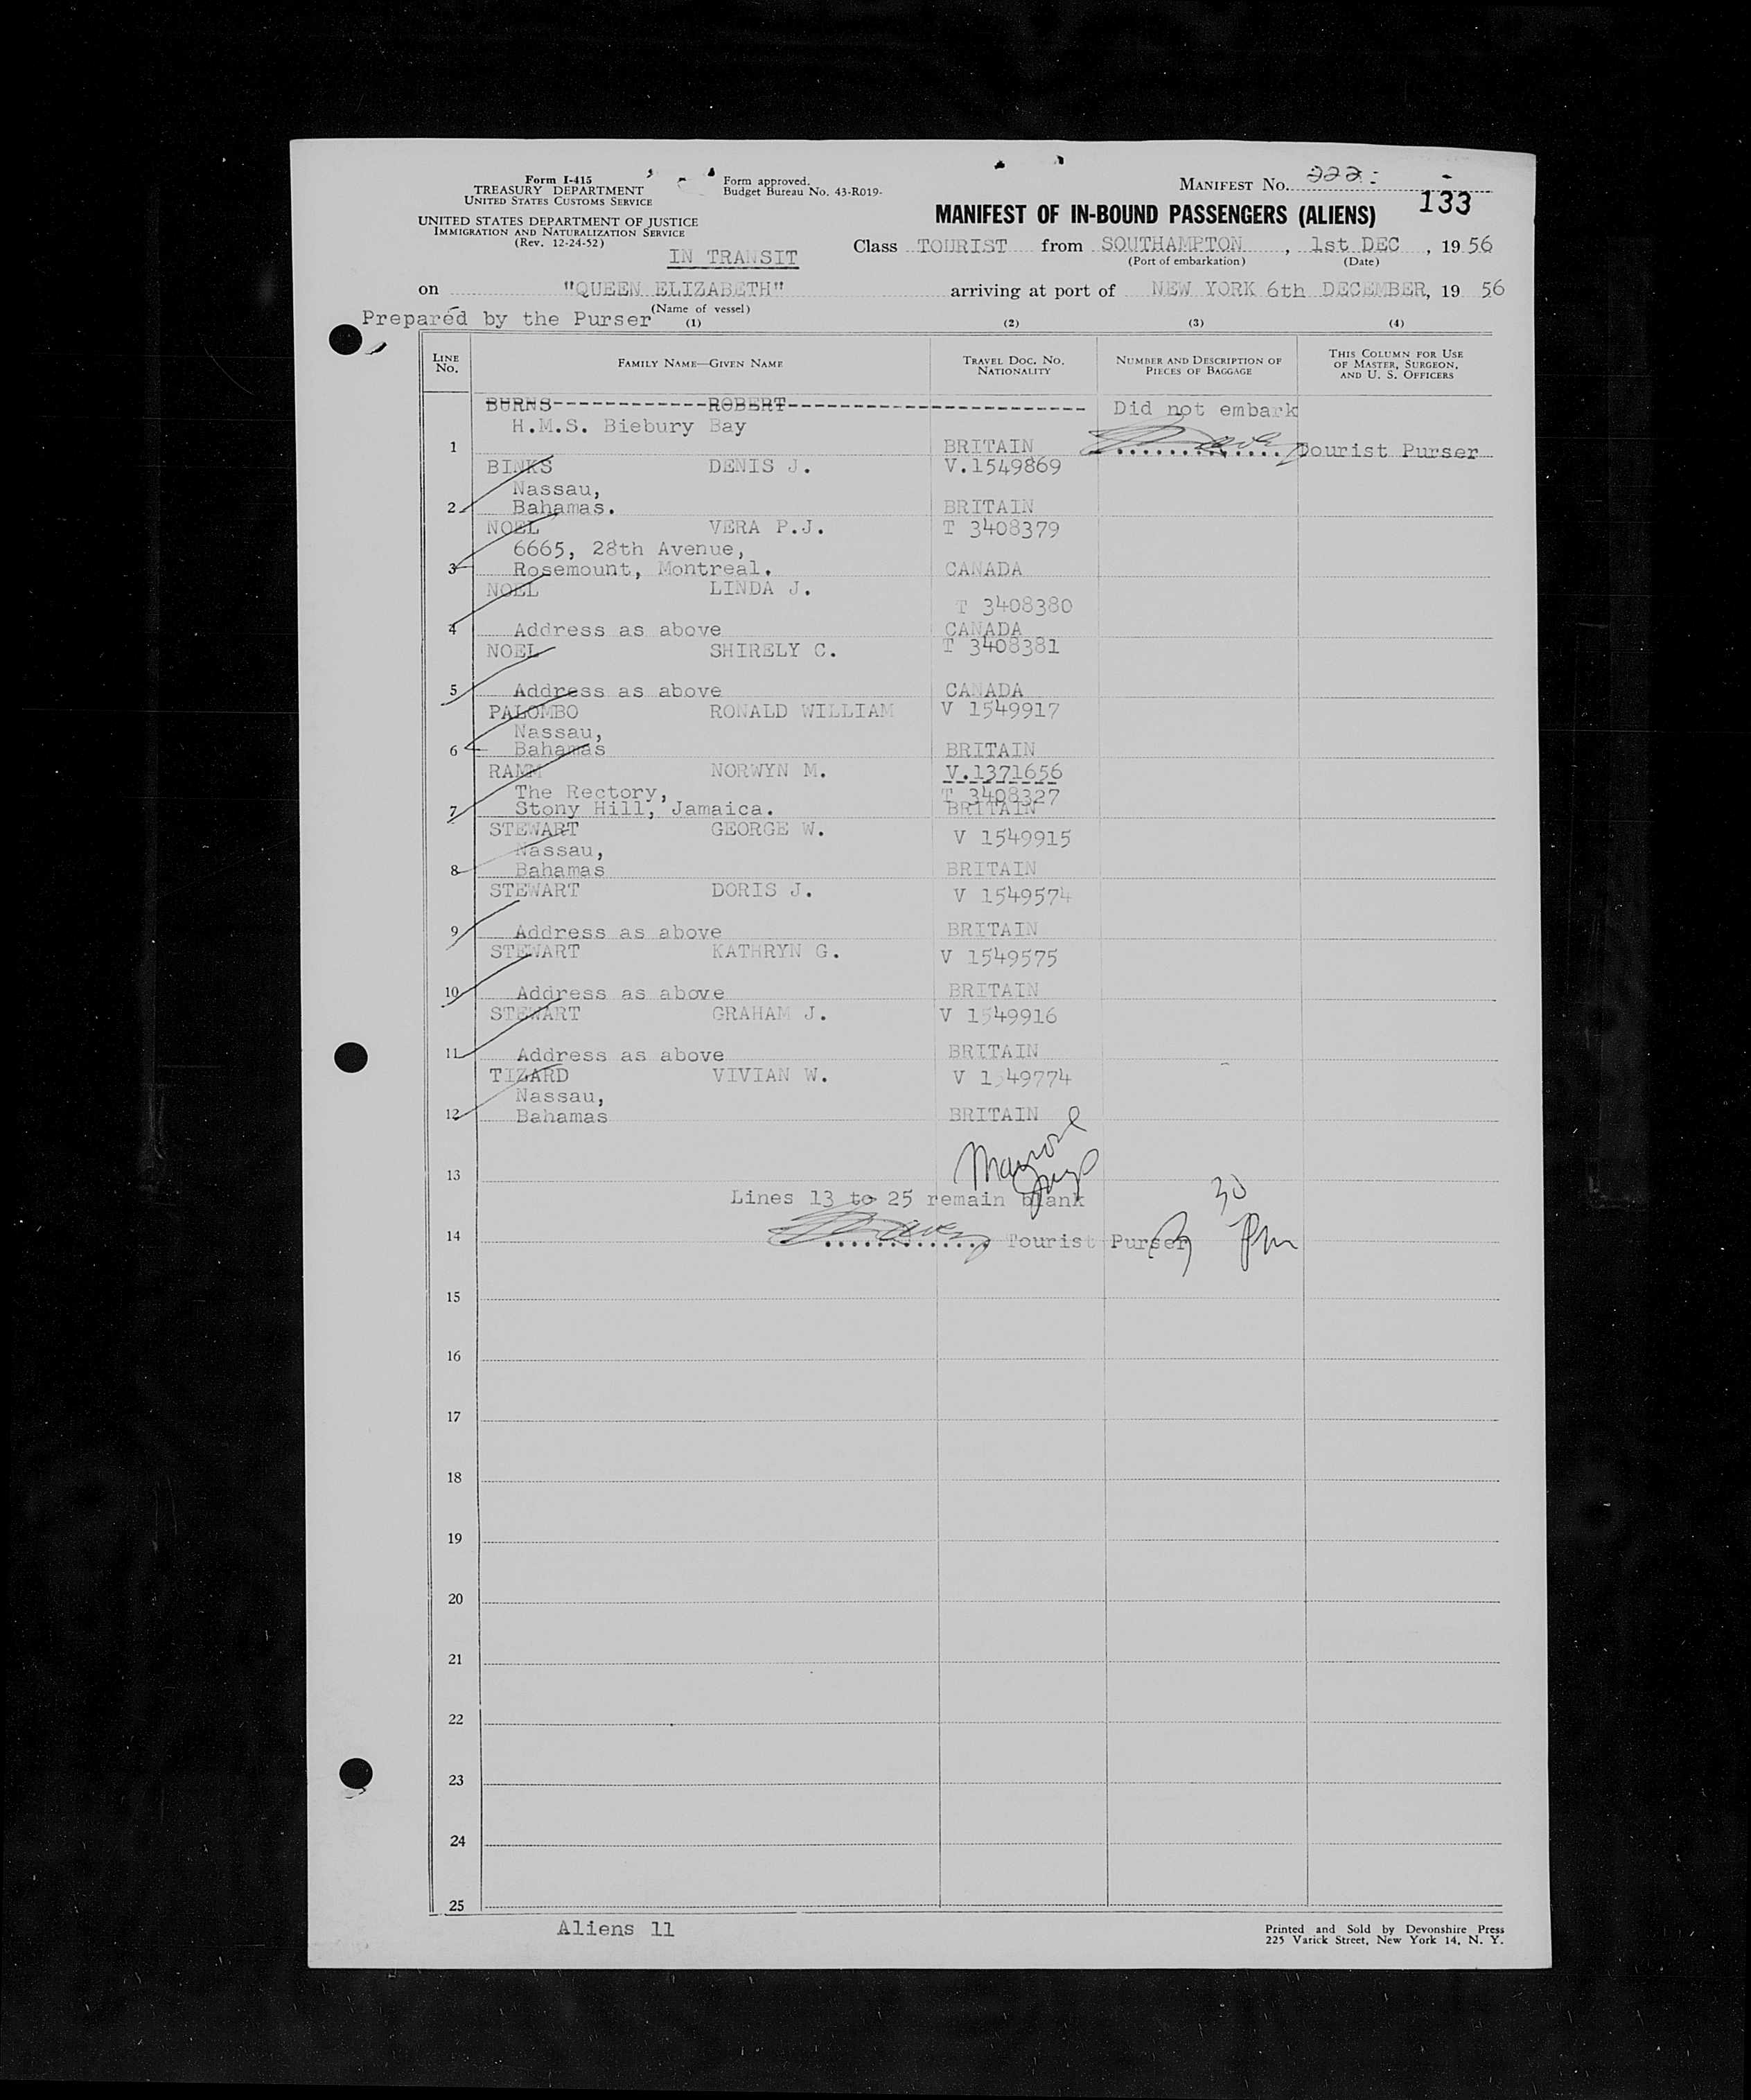 Form I-415
TREASURY DEPARTMENT
UNITED STATES CUSTOMS SERVICE
Form approved.
Budget Bureau No. 43-R019-
UNITED STATES DEPARTMENT OF JUSTICE
IMMIGRATION AND NATURALIZATION SERVICE
(Rev. 12-24-52)
MANIFEST NO. 222
133
MANIFEST OF IN-BOUND PASSENGERS (ALIENS)
IN TRANSIT
Class TOURIST from SOUTHAMPTON, 1st DEC, 19 56
(Port of embarkation) (Date)
on "QUEEN ELIZABETH" arriving at port of NEW YORK 6th DECEMBER, 19 56
(Name of vessel)
Prepared by the Purser
(1) (2) (3) (4)
LINE No. FAMILY NAME—GIVEN NAME TRAVEL DOC. NO. NATIONALITY NUMBER AND DESCRIPTION OF PIECES OF BAGGAGE THIS COLUMN FOR USE OF MASTER, SURGEON, AND U. S. OFFICERS
BURNS------------ROBERT----------------------- Did not embark
H.M.S. Biebury Bay
1 BRITAIN Tourist Purser
BINKS DENIS J. V.1549869
Nassau,
2 Bahamas. BRITAIN
NOEL VERA P.J. T 3408379
6665, 28th Avenue,
3 Rosemount, Montreal. CANADA
NOEL LINDA J.
T 3408380
4 Address as above CANADA
NOEL SHIRELY C. T 3408381
5 Address as above CANADA
PALOMBO RONALD WILLIAM V 1549917
Nassau,
6 Bahamas BRITAIN
RAMM NORWYN M. V.1371656
The Rectory, T 3408327
7 Stony Hill, Jamaica. BRITAIN
STEWART GEORGE W. V 1549915
Nassau,
8 Bahamas BRITAIN
STEWART DORIS J. V 1549574
9 Address as above BRITAIN
STEWART KATHRYN G. V 1549575
10 Address as above BRITAIN
STEWART GRAHAM J. V 1549916
11 Address as above BRITAIN
TIZARD VIVIAN W. V 1549774
Nassau,
12 Bahamas BRITAIN
13
Lines 13 to 25 remain blank
30
14 Tourist Purser
Pm
15
16
17
18
19
20
21
22
23
24
25
Aliens 11
Printed and Sold by Devonshire Press
225 Varick Street, New York 14, N. Y.